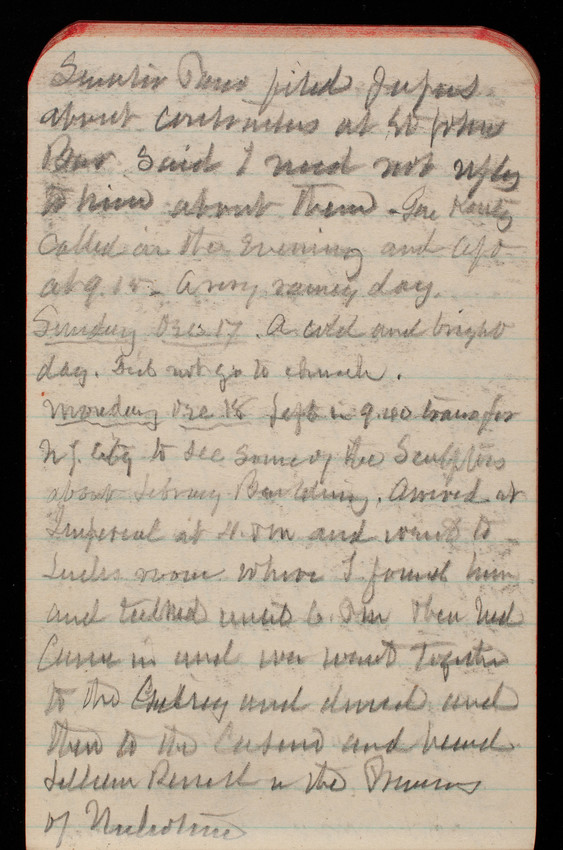 Senator filed
about contractors at St Johns
Bar said I need not reply
to him about them - The
Called in the Evening and left
at 9.15 - A very rainy day.
Sunday Dec 17. A cold and bright
day. Did not go to church.
Monday Dec 18 Left in 9.40 train for
N.Y. City to see some of the Sculptors
about Library Building. Arrived at
Imperial at 4. PM and went to
room where I found him
and talked until 6. PM then Ned
Came in and we went together
to the and dined and
then to the Casino and heard
Lillian Russell in the Princess
of Nicotine